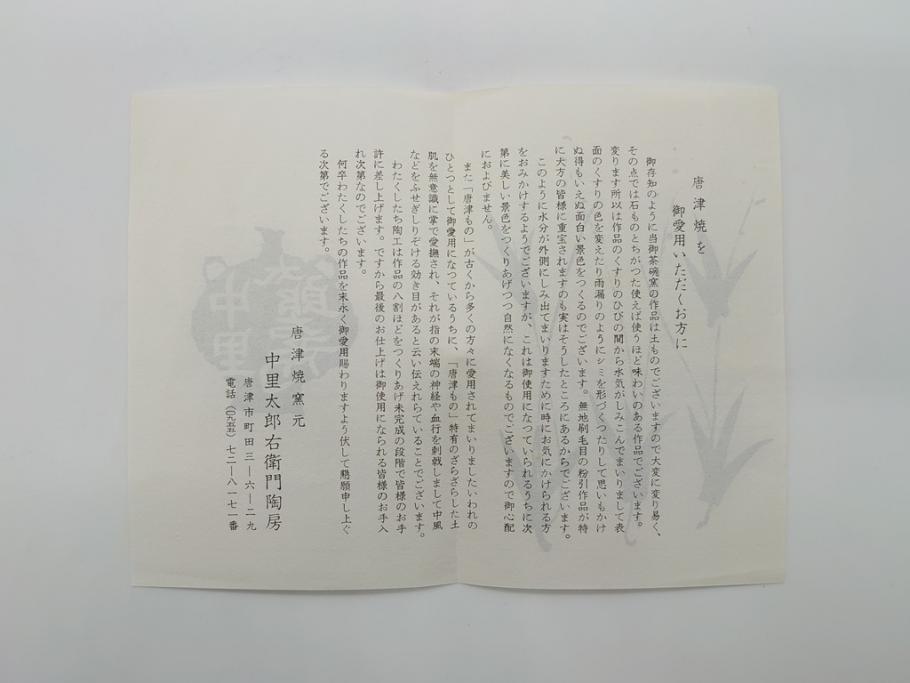 唐津焼を
御愛用いただくお方に
御存知のように当御茶碗窯の作品は土ものでございますので大変に変り易く、
その点では石ものとちがつた使えば使うほど味わいのある作品でございます。
変ります所以は作品のくすりのひびの間から水気がしみこんでまいりまして表
面のくすりの色を変えたり雨漏りのようにシミを形づくつたりして思いもかけ
ぬ得もいえぬ面白い景色をつくるのでございます。無地刷毛目の粉引作品が特
に大方の皆様に重宝されますのも実はそうしたところにあるからでございます。
このように水分が外側にしみ出てまいりますために時にお気にかけられる方
をおみかけするようでございますが、これは御使用になつていられるうちに次
第に美しい景色をつくりあげつつ自然になくなるものでございますので御心配
におよびません。
また「唐津もの」が古くから多くの方々に愛用されてまいりましたいわれの
ひとつとして御愛用になつているうちに、「唐津もの」特有のざらざらした土
肌を無意識に掌で愛撫され、それが指の末端の神経や血行を刺戟しまして中風
などをふせぎしりぞける効き目があると云い伝えれらていることでございます。
わたくしたち陶工は作品の八割ほどをつくりあげ未完成の段階で皆様のお手
許に差し上げます。ですから最後のお仕上げは御使用になられる皆様のお手入
れ次第なのでございます。
何卒わたくしたちの作品を末永く御愛用賜わりますよう伏して懇願申し上ぐ
る次第でございます。
唐津焼窯元
中里太郎右衛門陶房
唐津市町田三ー六ー二九
電話(〇九五五)七二ー八一七一番